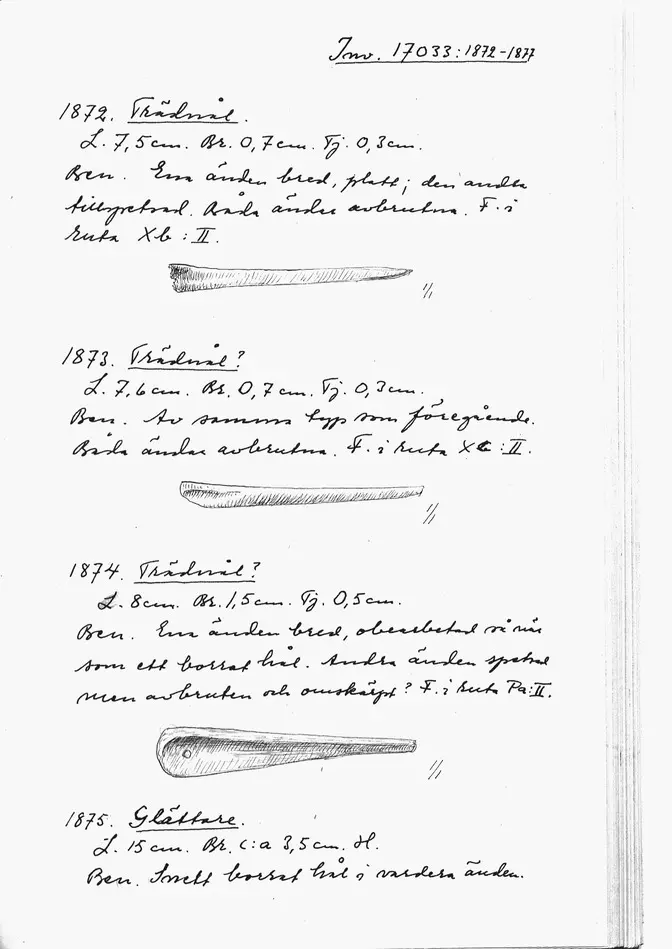 Inv. 17033:1872-1877
1872. Trådnål.
L. 7,5 cm. Br. 0,7 cm. Tj. 0,3 cm.
Ben. Ena änden bred, platt; den andra
tillspetsad. Båda ändar avbrutna. F. i
ruta Xb : II.
1/1
1873. Trådnål?
L. 7,6 cm. Br. 0,7 cm. Tj. 0,3 cm.
Ben. Av samma typ som föregående.
Båda ändar avbrutna. F. i ruta Xc : II.
1/1
1874. Trådnål?
L. 8 cm. Br. 1,5 cm. Tj. 0,5 cm.
Ben. Ena änden bred, obearbetad så när
som ett borrat hål. Andra änden spetsad
men avbruten och omskärpt? F. i ruta Pa:II.
1/1
1875. Glättare.
L. 15 cm. Br. c:a 3,5 cm. H.
Ben. Snett borrat hål i vardera änden.